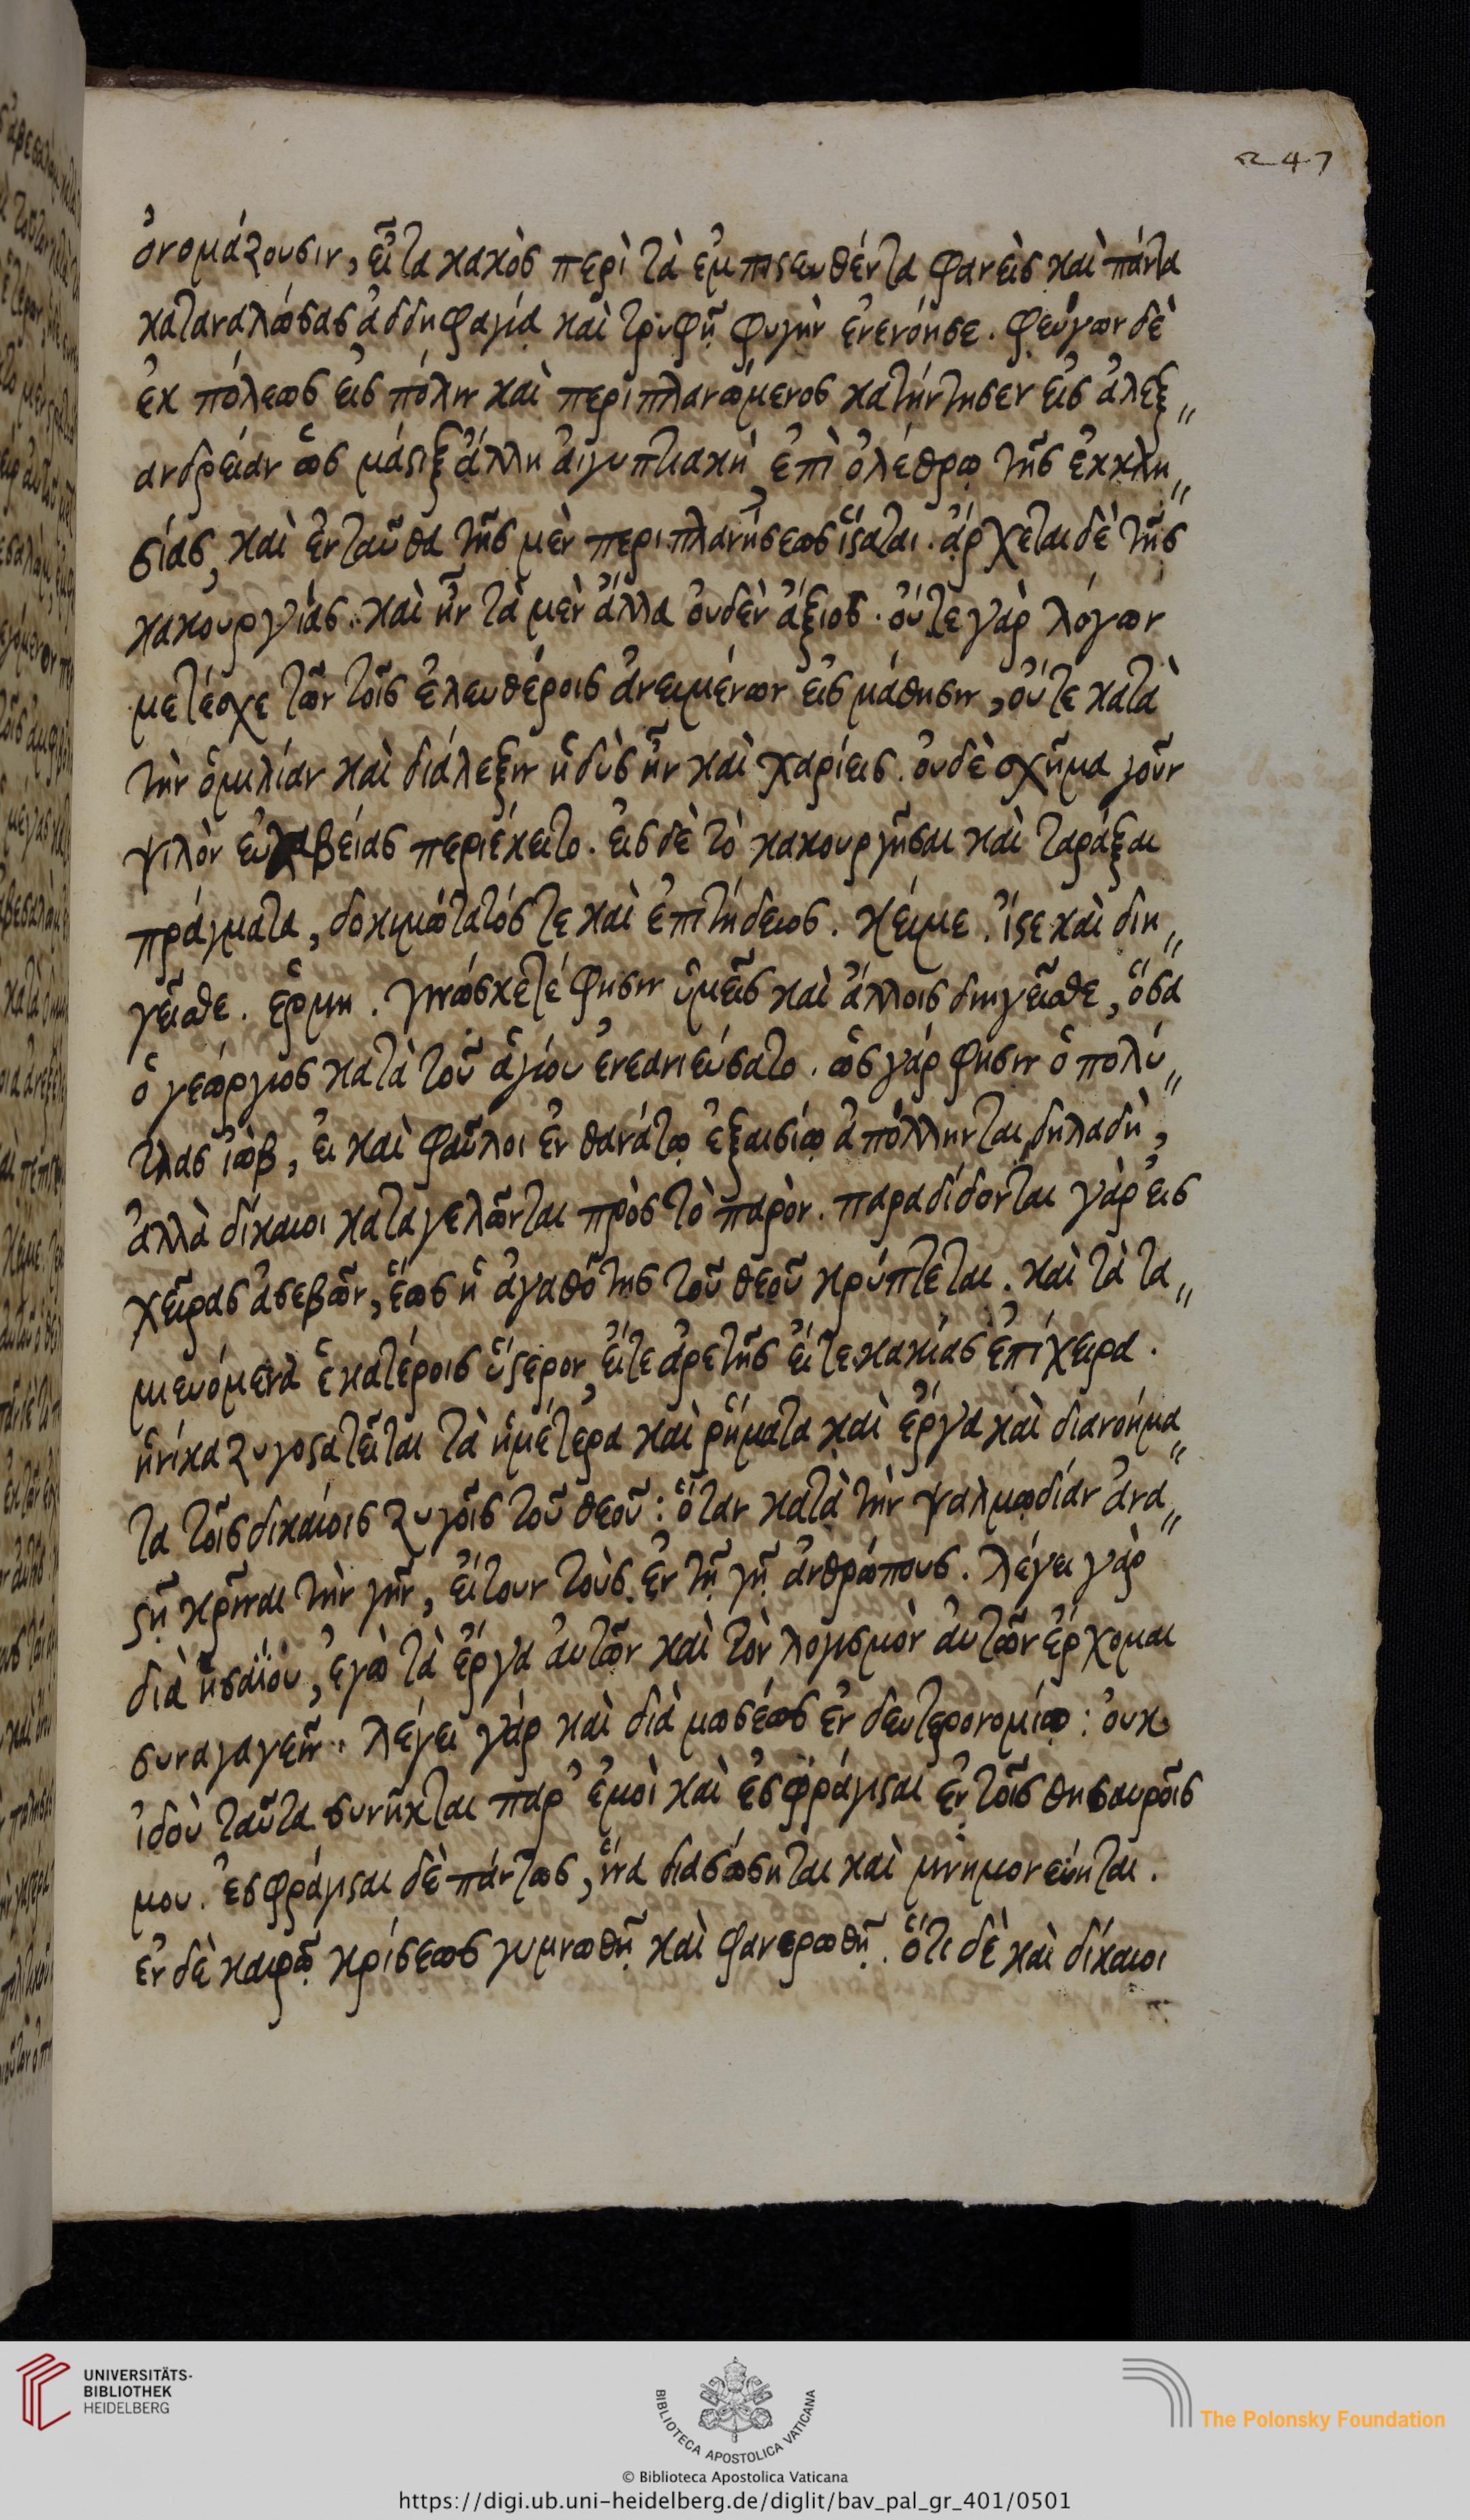 247
ὀνομάζουσιν, εἶτα κακὸς περὶ τὰ ἐμπιστευθέντα φανεὶς καὶ πάντα
καταναλώσας ἀδδηφαγία καὶ τρυφῇ φυγὴν ἐνενόησε. φεύγων δὲ
ἐκ πόλεως εἰς πόλιν καὶ περιπλανώμενος κατήντησεν εἰς ἀλεξ〃
ανδρείαν ὡς μάστιξ ἄλλη αἰγυπτιακὴ, ἐπὶ ὀλέθρῳ τῆς ἐκκλη〃
σίας, καὶ ἐνταῦθα τῆς μὲν περιπλανήσεως ἵσταται. ἄρχεται δὲ τῆς
κακουργίας. καὶ ἦν τὰ μὲν ἄλλα οὐδὲν ἄξιος. οὔτε γὰρ λόγων
μετέσχε τῶν τοῖς ἐλευθέροις ἀνειμένων εἰς μάθησιν, οὔτε κατὰ
τὴν ὁμιλίαν καὶ διάλεξιν ἡδὺς ἦν καὶ χαρίεις. οὐδὲ σχῆμα γοῦν
ψιλὸν εὐλαβείας περιέκειτο. εἰς δὲ τὸ κακουργῆσαι καὶ ταράξαι
πράγματα, δοκιμώτατός τε καὶ ἐπιτήδειος. κείμε. ἴστε καὶ διη〃
γεῖσθε. ἑρμη. γινώσκετέ φησιν ὑμεῖς καὶ ἄλλοις διηγεῖσθε, ὅσα
ὁ γεώργιος κατὰ τοῦ ἁγίου ἐνεανιεύσατο. ὡς γάρ φησιν ὁ πολύ〃
τλας ἰὼβ, εἰ καὶ φαῦλοι ἐν θανάτῳ ἐξαισίῳ ἀπόλλυνται δηλαδὴ,
ἀλλὰ δίκαιοι καταγελῶνται πρὸς τὸ παρὸν. παραδίδονται γὰρ εἰς
χεῖρας ἀσεβῶν, ἕως ἡ ἀγαθότης τοῦ θεοῦ κρύπτεται. καὶ τὰ τα〃
μιευόμενα ἑκατέροις ὕστερον, εἴτε ἀρετῆς εἴτε κακίας ἐπίχειρα.
ἡνίκα ζυγοστατεῖται τὰ ἡμέτερα καὶ ῥήματα καὶ ἔργα καὶ διανοήμα〃
τα τοῖς δικαίοις ζυγοῖς τοῦ θεοῦ: ὅταν κατὰ τὴν ψαλμῳδίαν ἀνα〃
στῇ κρῖναι τὴν γῆν, εἴτουν τοὺς ἐν τῇ γῇ ἀνθρώπους. λέγει γὰρ
διὰ ἡσαΐου, ἐγὼ τὰ ἔργα αὐτῶν καὶ τὸν λογισμὸν αὐτῶν ἔρχομαι
συναγαγεῖν. λέγει γὰρ καὶ διὰ μωσέως ἐν δευτερονομίῳ: οὐκ
ἰδοὺ ταῦτα συνῆκται παρ' ἐμοὶ καὶ ἐσφράγισται ἐν τοῖς θησαυροῖς
μου. ἐσφράγισται δὲ πάντως, ἵνα διασώσηται καὶ μνημονεύηται.
ἐν δὲ καιρῷ κρίσεως γυμνωθῇ καὶ φανερωθῇ. ὅτι δὲ καὶ δίκαιοι
UNIVERSITÄTS-
BIBLIOTHEK
HEIDELBERG
BIBLIOTECA APOSTOLICA VATICANA
The Polonsky Foundation
© Biblioteca Apostolica Vaticana
https://digi.ub.uni-heidelberg.de/diglit/bav_pal_gr_401/0501